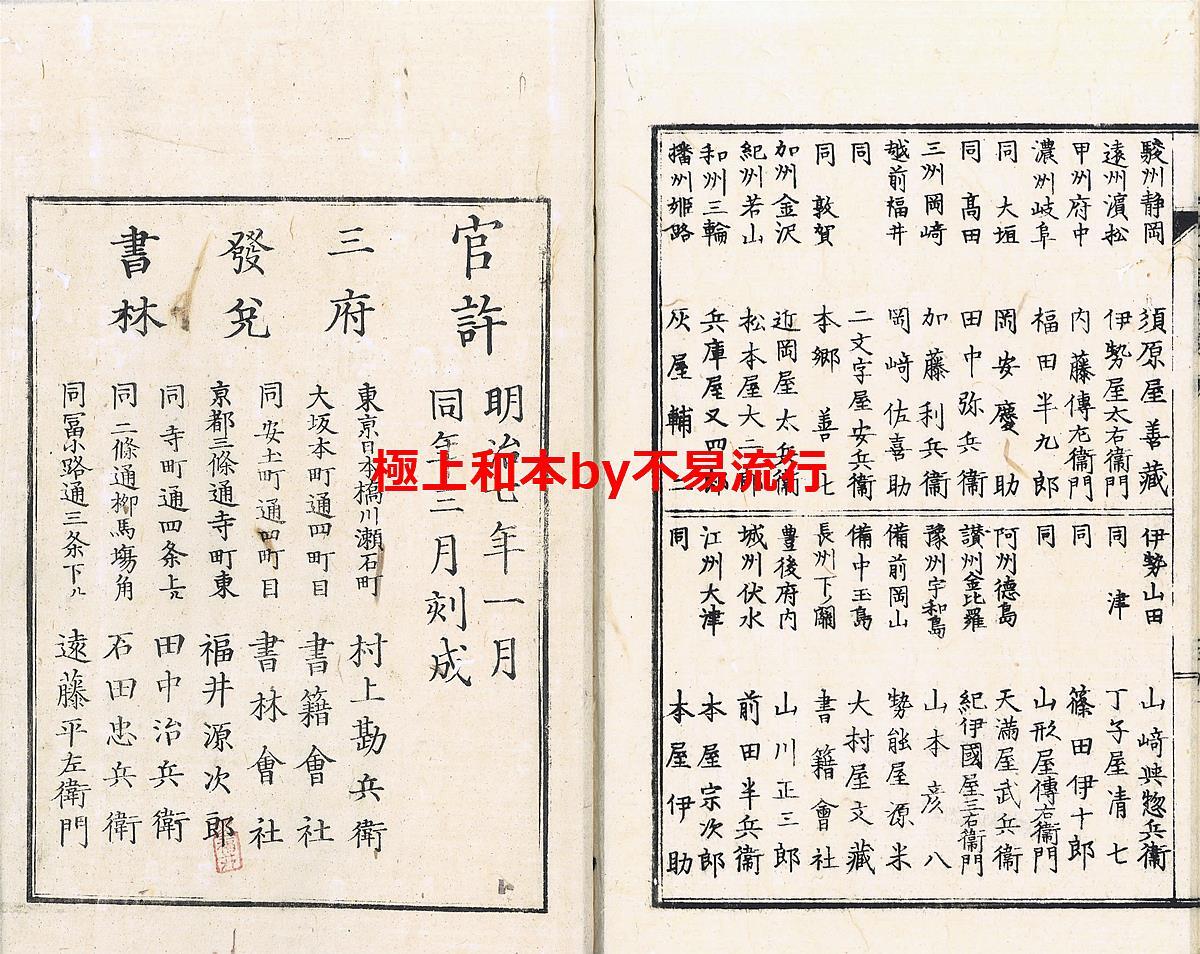 駿州静岡 須原屋善藏
遠州濱松 伊勢屋太右衞門
甲州府中 内藤傳右衞門
濃州岐阜 福田半九郎
同 大垣 岡安慶助
同 髙田 田中弥兵衞
三州岡﨑 加藤利兵衞
越前福井 岡﨑佐喜助
同 二文字屋安兵衞
同 敦賀 本郷善七
加州金沢 近岡屋太兵衞
紀州若山 松本屋大二郎
和州三輪 兵庫屋又四郎
播州姫路 灰屋輔二
伊勢山田 山﨑興惣兵衞
同 津 丁子屋清七
同 篠田伊十郎
同 山形屋傳右衞門
阿州德島 天満屋武兵衞
讃州金比羅 紀伊國屋三右衞門
豫州宇和島 山本彦八
備前岡山 勢能屋源米
備中玉島 大村屋文藏
長州下ノ關 書籍會社
豊後府内 山川正三郎
城州伏水 前田半兵衞
江州大津 本屋宗次郎
同 本屋伊助
官許 明治七年一月
同年三月刻成
三府
發兌
書林
東京日本橋川瀬石町 村上勘兵衛
大坂本町通四町目 書籍會社
同安土町通四町目 書林會社
京都三條通寺町東 福井源次郎
同寺町通四条上ル 田中治兵衛
同二條通柳馬塲角 石田忠兵衛
同冨小路通三条下ル 遠藤平左衛門
極上和本by不易流行